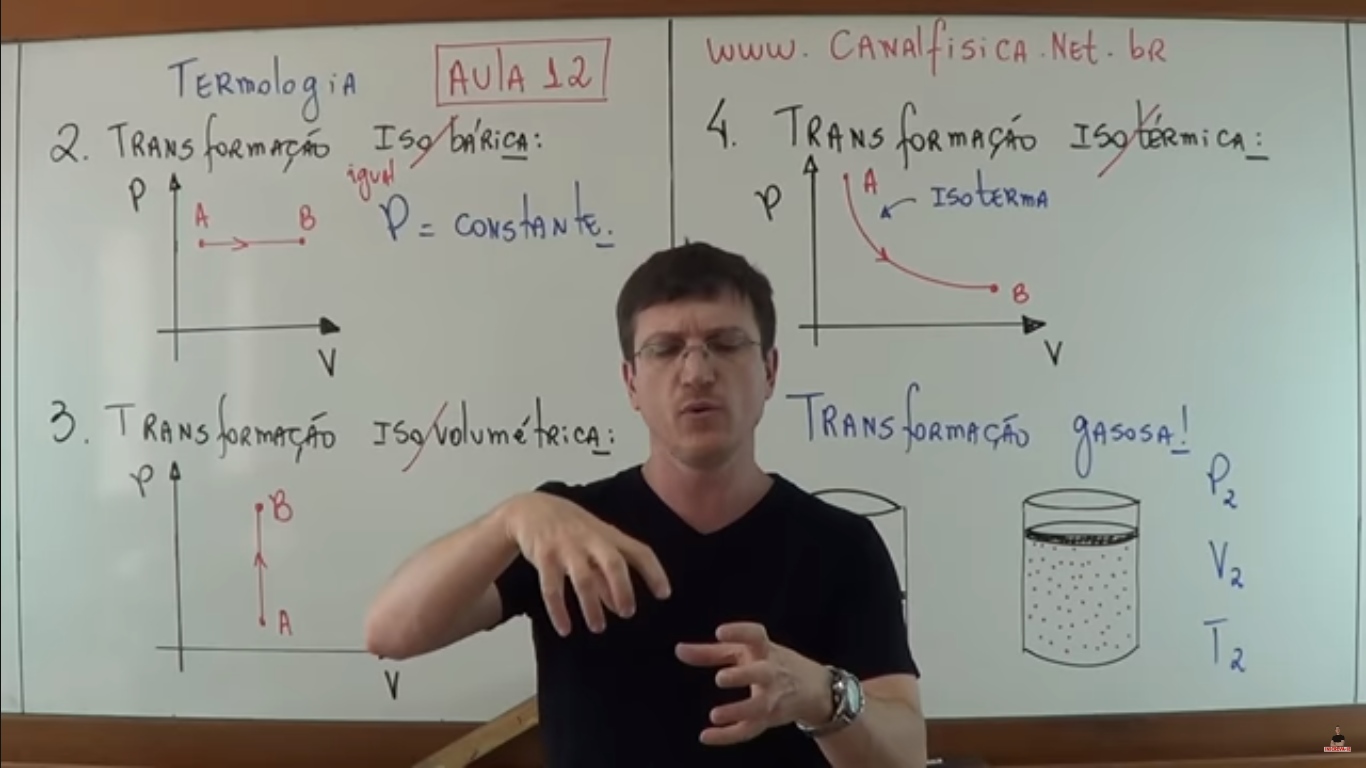 TERmologiA
AULA 12
2. TRANSformAÇÃO ISObáRiCA:
igual
P = CONSTANTE.
P
A
B
V
3. TRANSformAÇÃO ISOvolumétRicA:
P
B
A
V
www.CANAlfísicA.Net.bR
4. TRANSformAÇÃO ISOtéRmicA:
P
A
ISOTERMA
B
V
TRANSformAÇÃO gASOSA!
P2
V2
T2